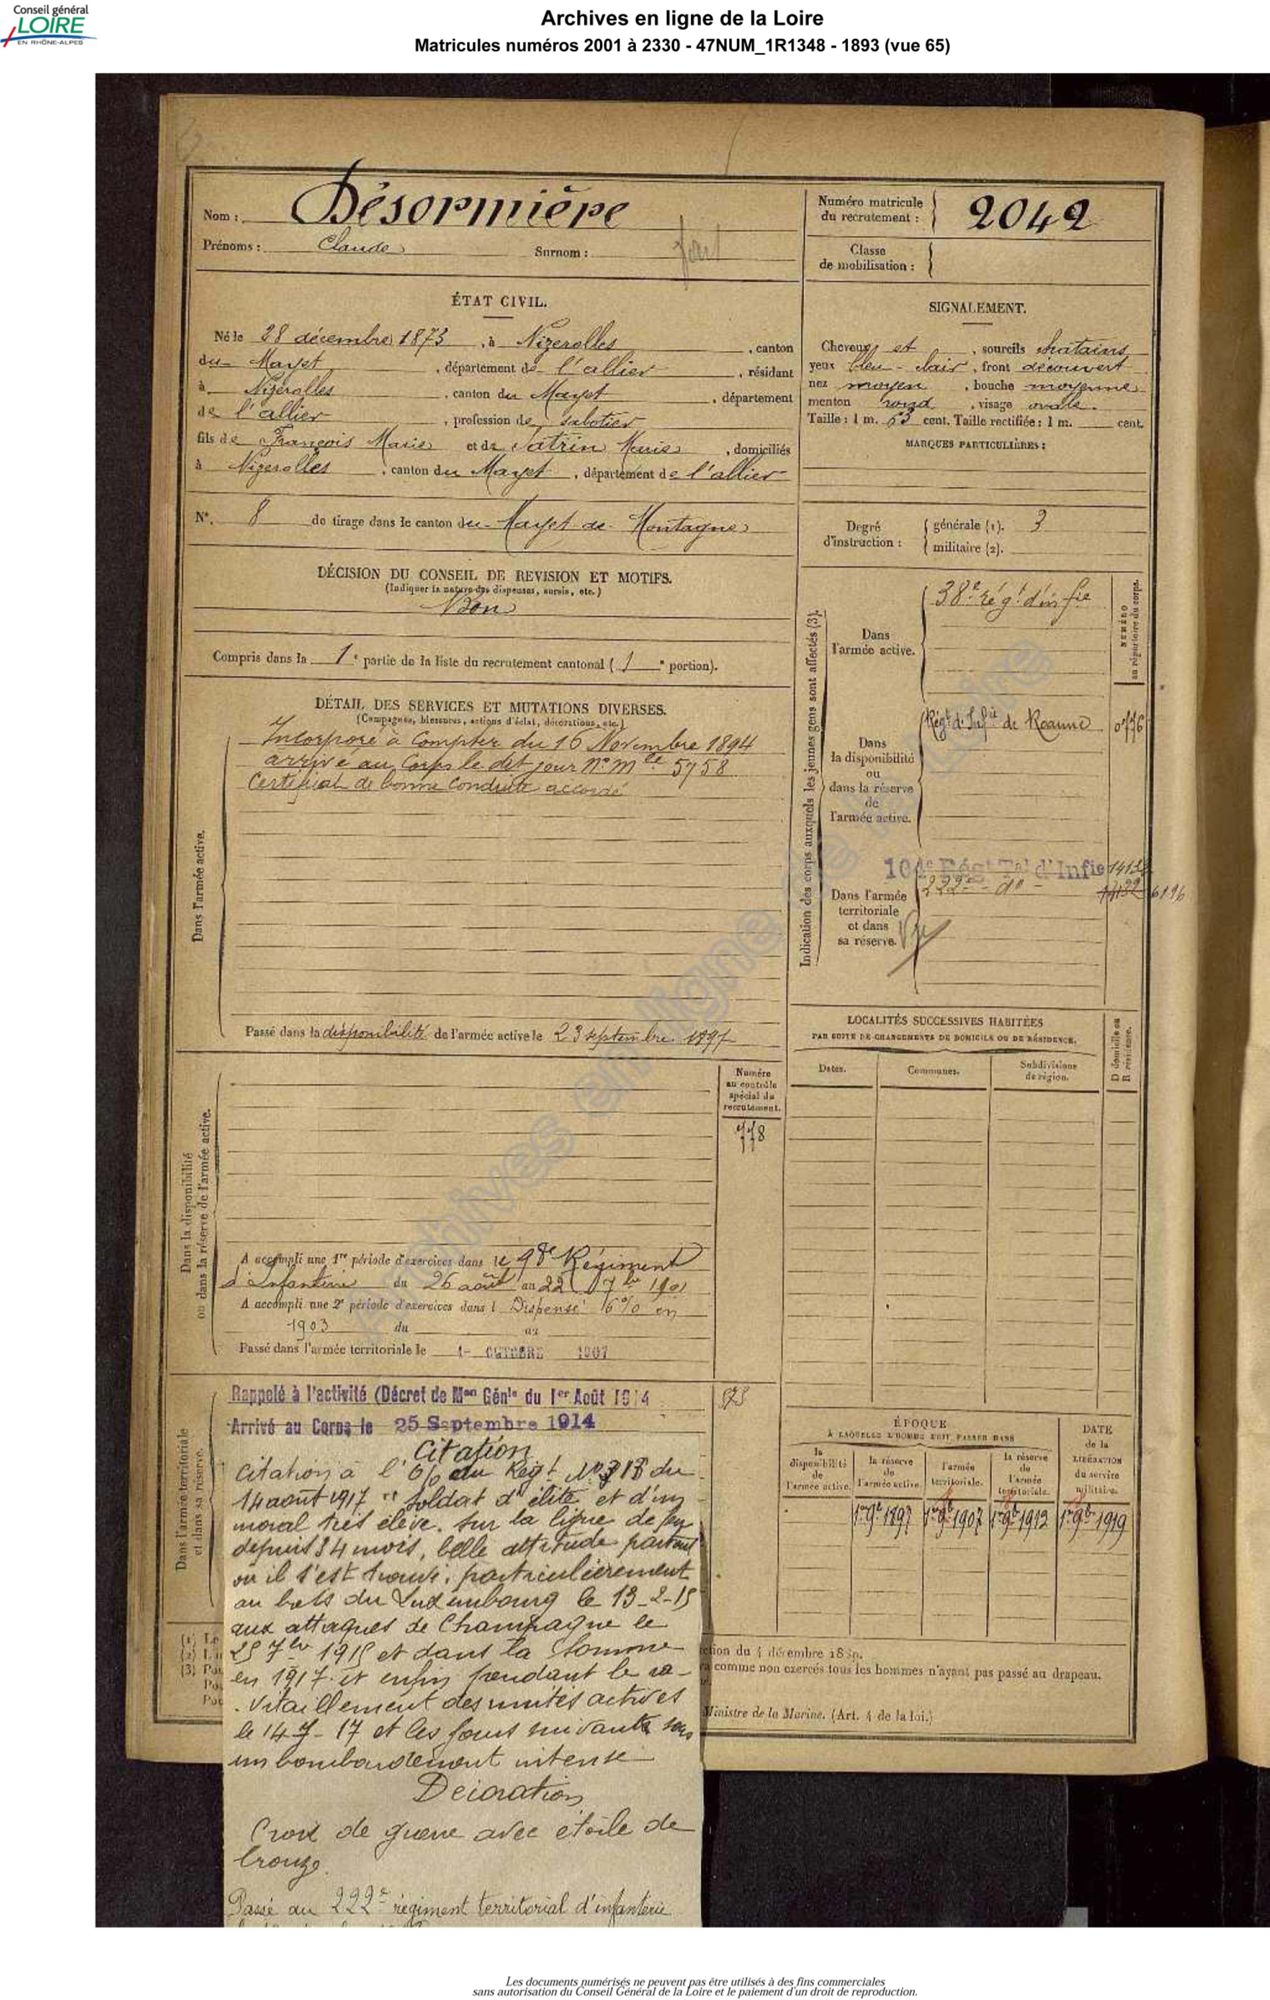 Conseil général
LOIRE
EN RHÔNE-ALPES
Archives en ligne de la Loire
Matricules numéros 2001 à 2330 - 47NUM_1R1348 - 1893 (vue 65)
Nom : Désormière
Prénoms : Claude Surnom :
Numéro matricule du recrutement : 2042
Classe de mobilisation :
ÉTAT CIVIL.
Né le 28 décembre 1873, à Nizerolles, canton
du Mayet, département de l'allier, résidant
à Nizerolles, canton du Mayet, département
de l'allier, profession de sabotier
fils de François Marie et de Satrin Marie, domiciliés
à Nizerolles, canton du Mayet, département de l'allier
N°. 8 de tirage dans le canton du Mayet-de-Montagne
DÉCISION DU CONSEIL DE REVISION ET MOTIFS.
(Indiquer la nature des dispenses, sursis, etc.)
Bon
Compris dans la 1e partie de la liste du recrutement cantonal (1e portion).
SIGNALEMENT.
Cheveux et sourcils chatains
yeux bleu-clair, front découvert
nez moyen, bouche moyenne
menton rond, visage ovale.
Taille : 1 m. 63 cent. Taille rectifiée : 1 m. cent.
MARQUES PARTICULIÈRES :
Degré d'instruction : générale (1). 3
militaire (2).
DÉTAIL DES SERVICES ET MUTATIONS DIVERSES.
(Campagnes, blessures, actions d'éclat, décorations, etc.)
Dans l'armée active.
Incorporé à Compter du 16 Novembre 1894
arrivé au Corps le dit jour N° Mle 5758
Certificat de bonne Conduite accordé
Passé dans la disponibilité de l'armée active le 23 septembre 1897
Indication des corps auxquels les jeunes gens sont affectés (3).
NUMÉRO
au répertoire du corps.
Dans l'armée active.
38e rég.t d'inf.ie
Dans la disponibilité ou dans la réserve de l'armée active.
Rég.t d'Inf.ie de Roanne 0776
Dans l'armée territoriale et dans sa réserve.
104e Rég.t Tal d'Infie
222me do 6196
Vu
LOCALITÉS SUCCESSIVES HABITÉES
PAR SUITE DE CHANGEMENTS DE DOMICILE OU DE RÉSIDENCE.
Dates. Communes. Subdivisions de région.
D domicile ou R résidence.
Dans la disponibilité ou dans la réserve de l'armée active.
Numéro au contrôle spécial du recrutement.
778
A accompli une 1re période d'exercices dans le 98e Régiment
d'Infanterie du 26 août au 22 7bre 1901
A accompli une 2e période d'exercices dans l Dispensé 6% en
1903 du au
Passé dans l'armée territoriale le 1er OCTOBRE 1907
Dans l'armée territoriale et dans sa réserve.
Rappelé à l'activité (Décret de Mon Génle du 1er Août 1914
Arrivé au Corps le 25 Septembre 1914
Citation
Citation à l'O/ du Régt du
14 août 1917 "Soldat d'élite et d'un
moral très élevé. Sur la ligne de feu
depuis 34 mois, belle attitude partout
où il s'est trouvé; particulièrement
au bois du Luxembourg le 13-2-15
aux attaques de Champagne le
25 7bre 1915 et dans la Somme
en 1917 et enfin pendant le ra-
vitaillement des unités actives
le 14-7-17 et les jours suivants sous
un bombardement intense
Décoration
Croix de guerre avec étoile de
bronze.
Passé au 222e régiment territorial d'infanterie
ÉPOQUE
À LAQUELLE L'HOMME DOIT PASSER DANS
la disponibilité de l'armée active.
la réserve de l'armée active.
l'armée territoriale.
la réserve de l'armée territoriale.
DATE de la LIBÉRATION du service militaire.
1er 9b 1897 1er 9b 1907 1er 9b 1913 1er 9b 1919
comme non exercés tous les hommes n'ayant pas passé au drapeau.
Ministre de la Marine. (Art. 4 de la loi.)
Archives en ligne de la Loire
Les documents numérisés ne peuvent pas être utilisés à des fins commerciales
sans autorisation du Conseil Général de la Loire et le paiement d'un droit de reproduction.